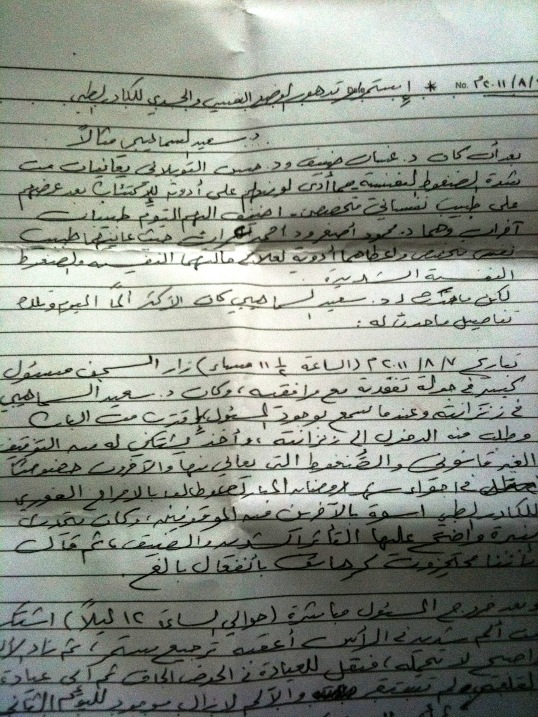 No. ٢٠١١/٨/
* إستمرار تدهور الوضع النفسي والجسدي للكادر الطبي
د. سعيد السماهيجي مثالاً
بعد أن كان د. غسان ضيف ود. حسن التوبلاني يعانيان من
شدة الضغوط النفسية مما أدى لوضعهم على أدوية للإكتئاب بعد عرضهم
على طبيب نفساني متخصص. اضيف اليهم اليوم طبيبان
آخران وهما د. محمود أصغر ود. احمد عمران حيث عاينهما طبيب
نفسي متخصص واعطاهما أدوية لعلاج حالتهما النفسية والضغوط
النفسية الشديرة.
لكن ماحدث لـ د. سعيد السماهيجي كان الأكثر ألماً اليوم وتلك
تفاصيل ماحدث له:
بتاريخ ٢٠١١/٨/٧م (الساعة ١١ ½ مساءً) زار السجن مسئول
كبير في جولة تفقدية مع مرافقيه، وكان د. سعيد السماهيجي
في زنزانته وعندما سمع بوجود المسئول إقترب من الباب
وطلب منه الدخول إلى زنزانته، وأخذ يشتكي له من التوقيف
الغير قانوني والضغوط التي يعاني منها والآخرون خصوصاً
في اجواء شهر رمضان المبارك وطالب بالافراج الفوري
للكادر الطبي اسوة بالآخرين من الموقوفين، وكان يتحدث
بنبرة واضح عليها التأثر الشديد والضيق، ثم قال
بأننا محتجزون كرهائن بانفعال بالغ.
وبعد خروج المسئول مباشرة (حوالي الساعة ١٢ ليلاً) اشتكى
من ألم شديد في الرأس أعقبه ترجيع مستمر، ثم
واضح لا تتحمله، فنقل للعيادة في الحوض الجاف ثم الى عيادة
القلعة ولم تستقر والآلم لازال موجود لليوم الثاني